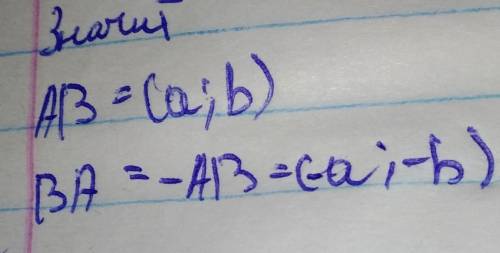 Значит
AB = (a; b)
BA = -AB = (-a; -b)